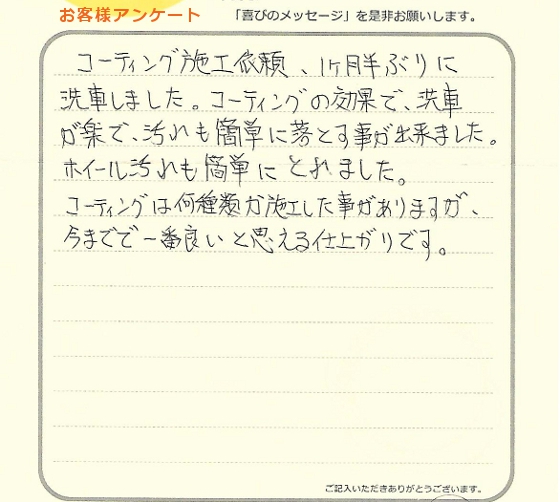 お客様アンケート 「喜びのメッセージ」を是非お願いします。
コーティング施工依頼、1ヶ月半ぶりに
洗車しました。コーティングの効果で、洗車
が楽で、汚れも簡単に落とす事が出来ました。
ホイール汚れも簡単にとれました。
コーティングは何種類か施工した事がありますが、
今までで一番良いと思える仕上がりです。
ご記入いただきありがとうございます。